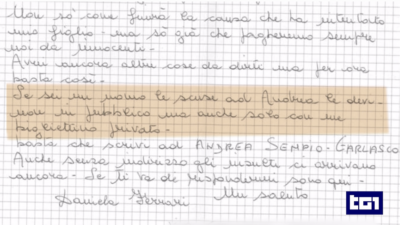 Non so come finirà la causa che ha intentato
mio figlio - ma so già che pagheremo sempre
noi da innocenti -
Avrei ancora altre cose da dirti ma per ora
basta così -
Se sei un uomo le scuse ad Andrea le devi -
non in pubblico ma anche solo con un
bigliettino privato -
basta che scrivi ad ANDREA SEMPIO - GARLASCO
Anche senza indirizzo gli insulti ci arrivano
ancora - Se ti va di rispondermi sono qui -
Un saluto
Daniela Ferrari
tg1